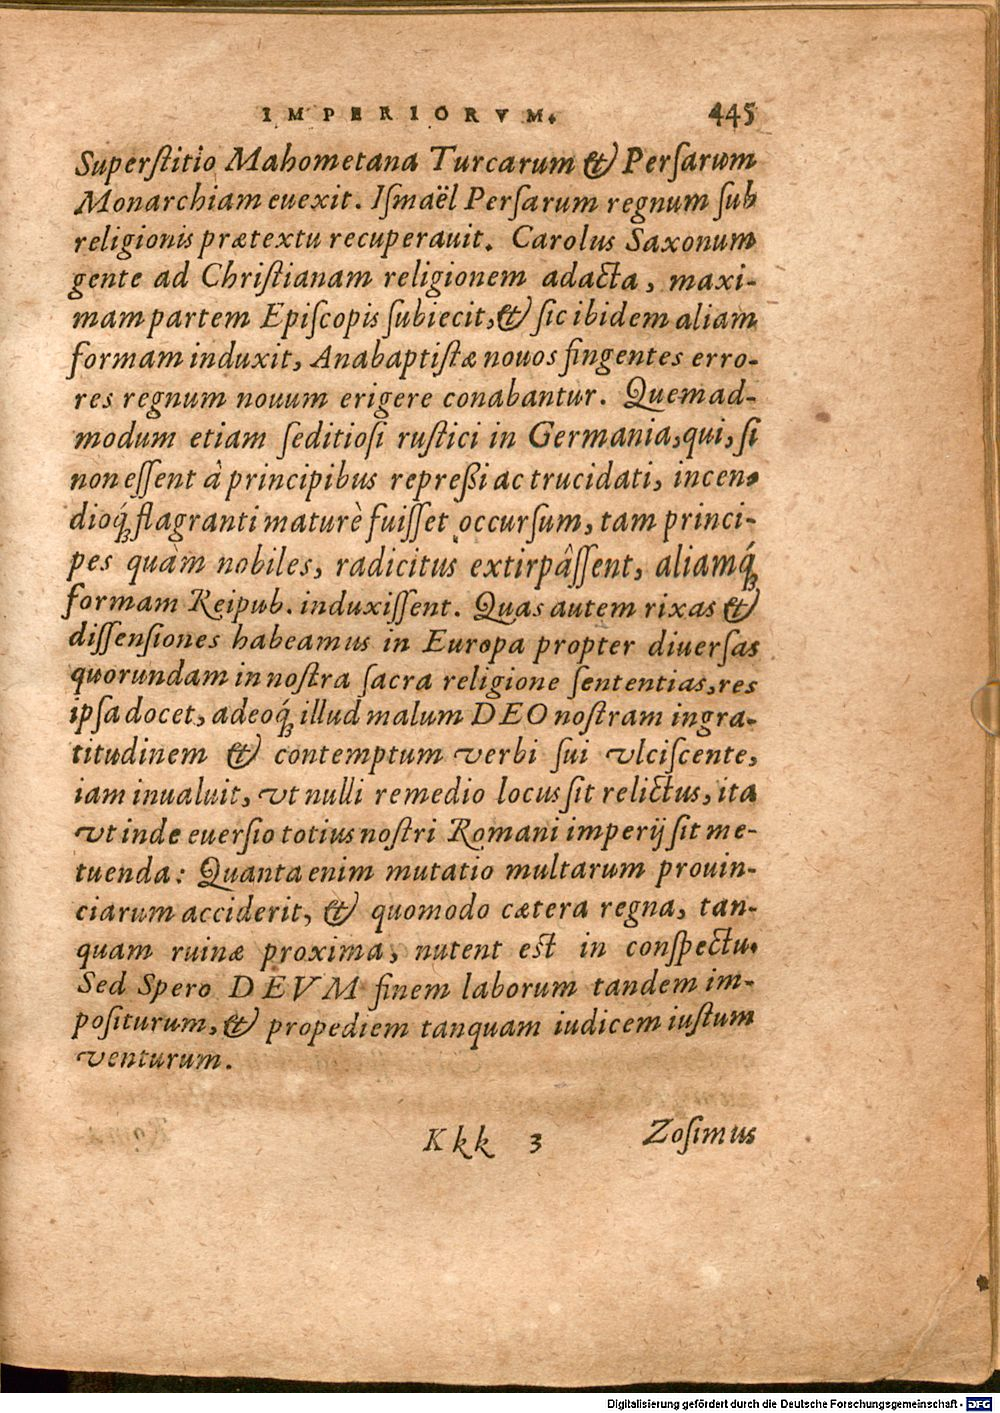 IMPERIORVM. 445
Superſtitio Mahometana Turcarum & Perſarum
Monarchiam euexit. Iſmaël Perſarum regnum ſub
religionis prætextu recuperauit. Carolus Saxonum
gente ad Chriſtianam religionem adacta, maxi-
mam partem Epiſcopis ſubiecit, & ſic ibidem aliam
formam induxit, Anabaptiſtæ nouos fingentes erro-
res regnum nouum erigere conabantur. Quemad-
modum etiam ſeditioſi ruſtici in Germania, qui, ſi
non eſſent à principibus repreßi ac trucidati, incen-
dioq́; flagranti maturè fuiſſet occurſum, tam princi-
pes quàm nobiles, radicitus extirpâſſent, aliamq́;
formam Reipub. induxiſſent. Quas autem rixas &
diſſenſiones habeamus in Europa propter diuerſas
quorundam in noſtra ſacra religione ſententias, res
ipſa docet, adeoq́; illud malum DEO noſtram ingra-
titudinem & contemptum verbi ſui vlciſcente,
iam inualuit, vt nulli remedio locus ſit relictus, ita
vt inde euerſio totius noſtri Romani imperij ſit me-
tuenda: Quanta enim mutatio multarum prouin-
ciarum acciderit, & quomodo cætera regna, tan-
quam ruinæ proxima, nutent eſt in conſpectu.
Sed Spero DEVM finem laborum tandem im-
poſiturum, & propediem tanquam iudicem iuſtum
venturum.
Kkk 3 Zoſimus
Digitalisierung gefördert durch die Deutsche Forschungsgemeinschaft - DFG